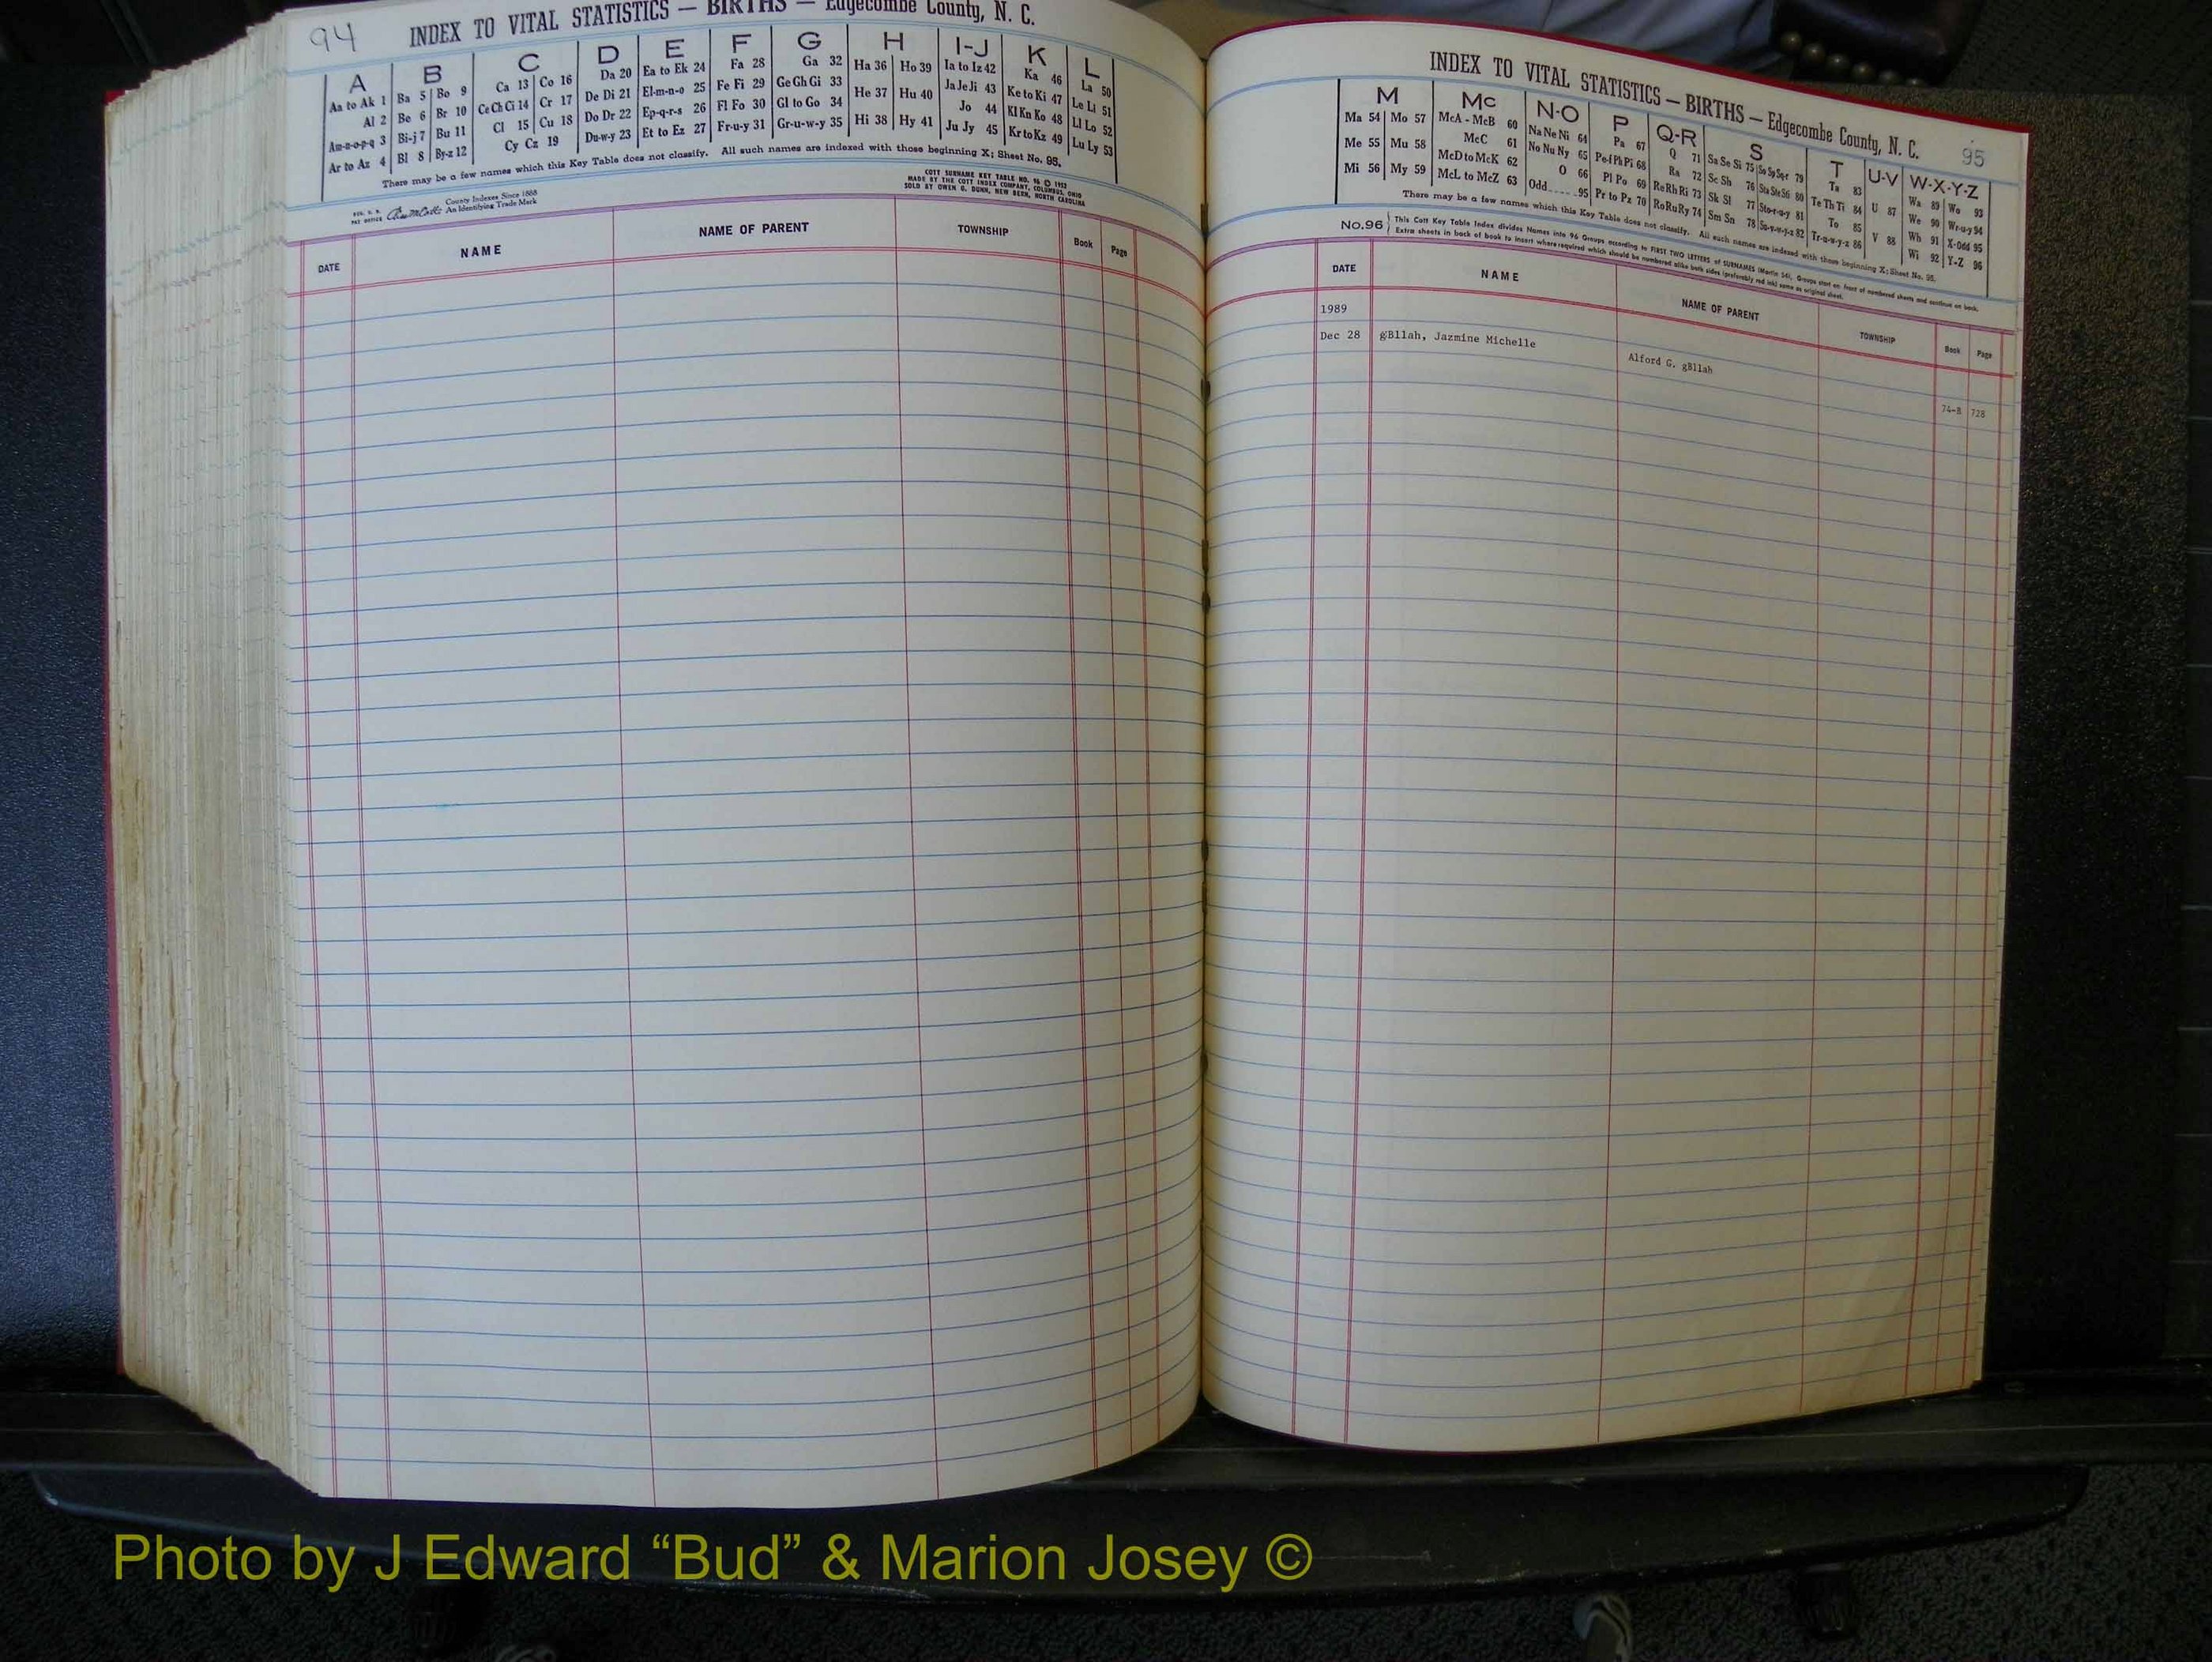 94
INDEX TO VITAL STATISTICS — BIRTHS — Edgecombe County, N. C.
A B C D E F G H I-J K L
Aa to Ak 1 Ba 5 Bo 9 Ca 13 Co 16 Da 20 Ea to Ek 24 Fa 28 Ga 32 Ha 36 Ho 39 Ia to Iz 42 Ka 46 La 50
Al 2 Be 6 Br 10 Ce Ch Ci 14 Cr 17 De Di 21 El-m-n-o 25 Fe Fi 29 Ge Gh Gi 33 He 37 Hu 40 Ja Je Ji 43 Ke to Ki 47 Le Li 51
Am-n-o-p-q 3 Bi-j 7 Bu 11 Cl 15 Cu 18 Do Dr 22 Ep-q-r-s 26 Fl Fo 30 Gl to Go 34 Hi 38 Hy 41 Jo 44 Kl Kn Ko 48 Ll Lo 52
Ar to Az 4 Bl 8 By-z 12 Cy Cz 19 Du-w-y 23 Et to Ez 27 Fr-u-y 31 Gr-u-w-y 35 Ju Jy 45 Kr to Kz 49 Lu Ly 53
There may be a few names which this Key Table does not classify. All such names are indexed with those beginning X; Sheet No. 95.
County Indexes Since 1888
An Identifying Trade Mark
COTT SURNAME KEY TABLE NO. 96 © 1952
MADE BY THE COTT INDEX COMPANY, COLUMBUS, OHIO
SOLD BY OWEN G. DUNN, NEW BERN, NORTH CAROLINA
DATE NAME NAME OF PARENT TOWNSHIP Book Page
INDEX TO VITAL STATISTICS — BIRTHS — Edgecombe County, N. C. 95
M Mc N-O P Q-R S T U-V W-X-Y-Z
Ma 54 Mo 57 McA - McB 60 Na Ne Ni 64 Pa 67 Q 71 Sa Se Si 75 So Sp Sq-r 79 Ta 83 U 87 Wa 89 Wo 93
Me 55 Mu 58 McC 61 No Nu Ny 65 Pe-f Ph Pi 68 Ra 72 Sc Sh 76 Sta Ste Sti 80 Te Th Ti 84 V 88 We 90 Wr-u-y 94
Mi 56 My 59 McD to McK 62 O 66 Pl Po 69 Re Rh Ri 73 Sk Sl 77 Sto-r-u-y 81 To 85 Wh 91 X-Odd 95
McL to McZ 63 Odd 95 Pr to Pz 70 Ro Ru Ry 74 Sm Sn 78 Su-v-w-y-z 82 Tr-u-w-y-z 86 Wi 92 Y-Z 96
There may be a few names which this Key Table does not classify. All such names are indexed with those beginning X; Sheet No. 95.
No.96 This Cott Key Table Index divides Names into 96 Groups according to FIRST TWO LETTERS of SURNAMES (Martin 54). Groups start on front of numbered sheets and continue on back.
Extra sheets in back of book to insert where required which should be numbered alike both sides (preferably red ink) same as original sheet.
DATE NAME NAME OF PARENT TOWNSHIP Book Page
1989
Dec 28 gBllah, Jazmine Michelle Alford G. gBllah 74-B 728
Photo by J Edward “Bud” & Marion Josey ©